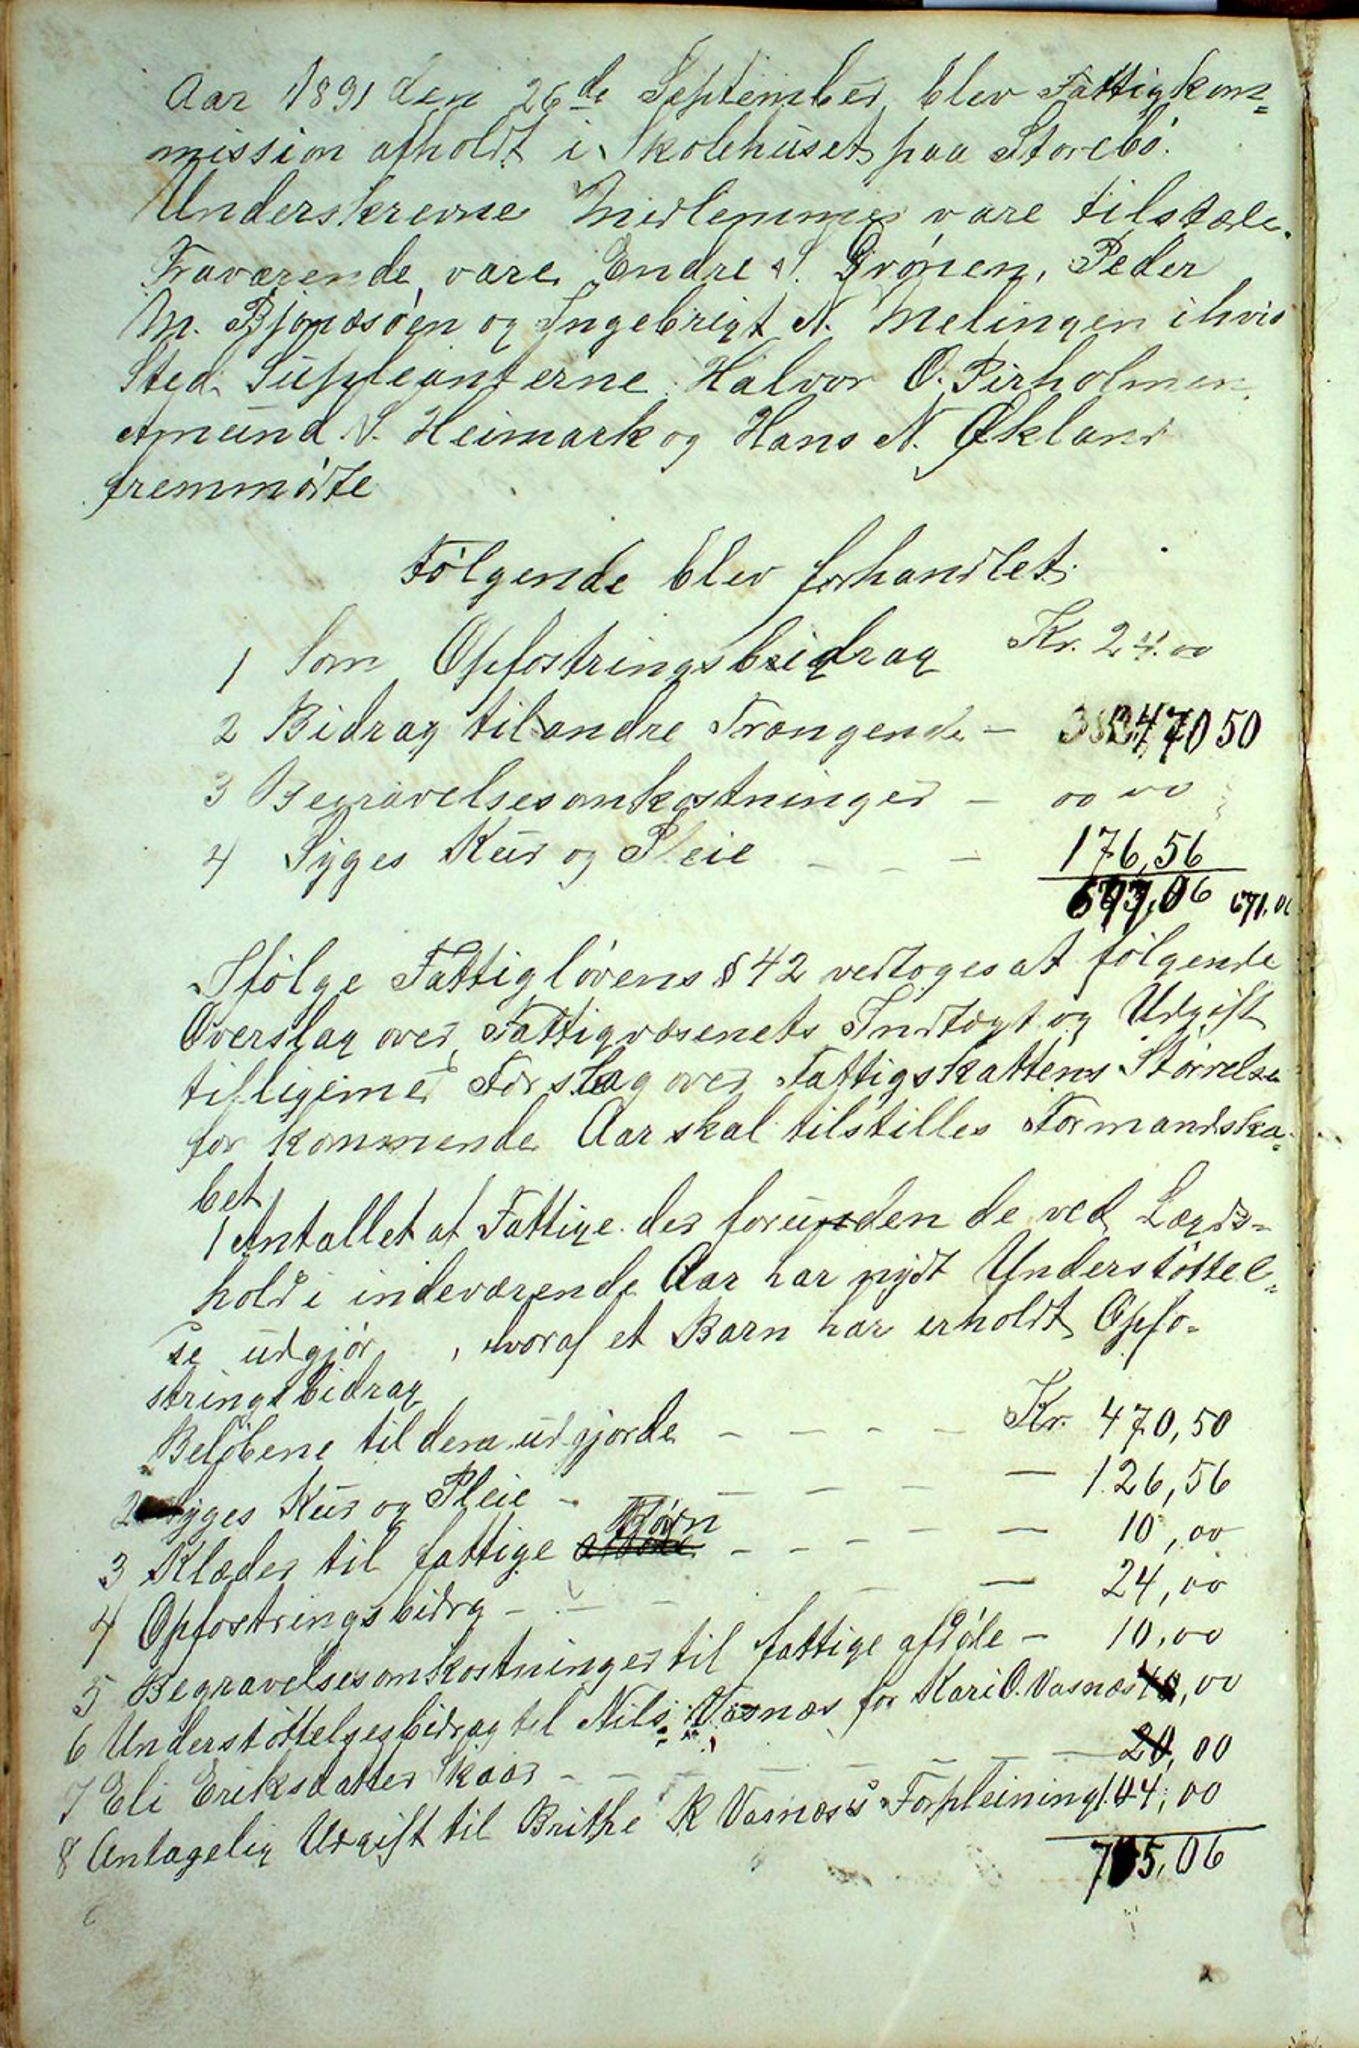 Aar 1891 den 26de September blev Fattigkom=
mission afholdt i Skolehuset paa Storebø.
Underskrevne Medlemmer vare tilstæde.
Fraværende vare Endre S. Grønen, Peder
M. Bjønæsøen og Ingebrigt N. Melingen i hvis
Sted Supleanterne Halvor O. Pirholmen,
Amund N. Heimark og Hans N. Økland
fremmødte
Følgende blev forhandlet
1 Som Opfostringsbeidrag Kr. 24.00
2 Bidrag til andre Trængende - 470 50
3 Begravelsesomkostninger - 00 00
4 Syges Kur og Pleie - - - 176,56
06 671.06
Ifølge Fattiglovens § 42 vedtoges at følgende
Overslag over Fattigvæsenets Indtægt og Udgift
tilligemed Forslag over Fattigskattens Størrelse
for kommende Aar skal tilstilles Formandska=
bet
1 Antallet af Fattige der foruden de ved Lægds=
hold i indeværende Aar har nydt Understøttel=
se udgjør , hvoraf et Barn har erholdt Opfo-
stringsbidrag
Beløbene til dem udgjorde - - - - Kr. 470,50
2 Syges Kur og Pleie - - - - - 126,56
3 Klæder til fattige Børn - - - - 10,00
4 Opfostringsbidrg - - - - - 24,00
5 Begravelsesomkostninger til fattige afdøde - 10,00
6 Understøttelsesbidrag til Nils Vasnæs for Kari O. Vasnæs 10,00
7 Eli Eriksdatter Skaar - - - - - - 20,00
8 Antagelig Udgift til Brithe K Vasnæs's Forpleining 144,00
705,06